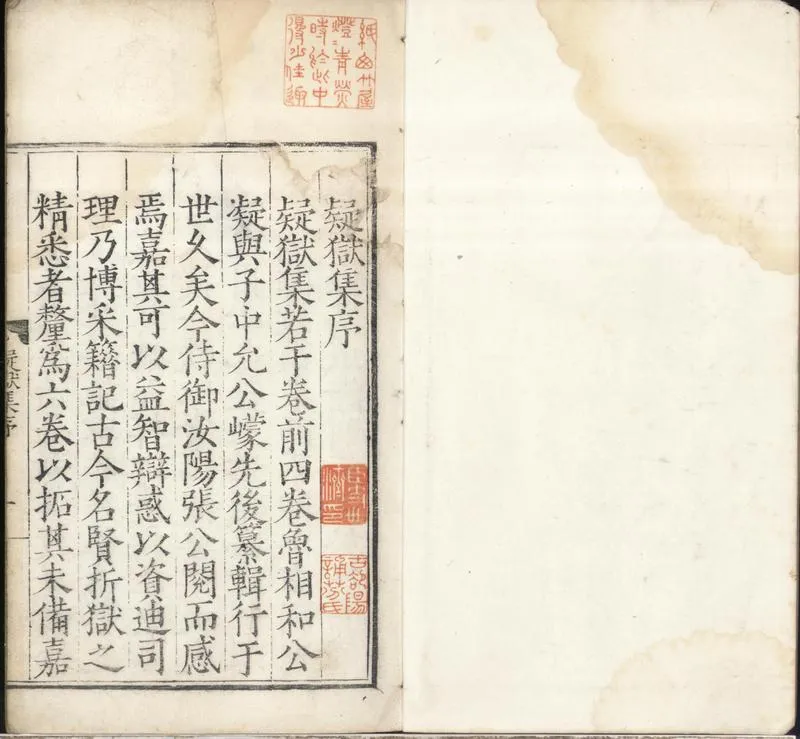 紙窗竹屋
燈火青熒
時於此中
得少佳趣
疑獄集序
疑獄集若干卷前四卷魯相和公
凝與子中允公㠓先後纂輯行于
世久矣今侍御汝陽張公閱而感
焉嘉其可以益智辯惑以資迪司
理乃博采籍記古今名賢折獄之
精悉者釐爲六卷以拓其未備嘉
疑獄集序
一